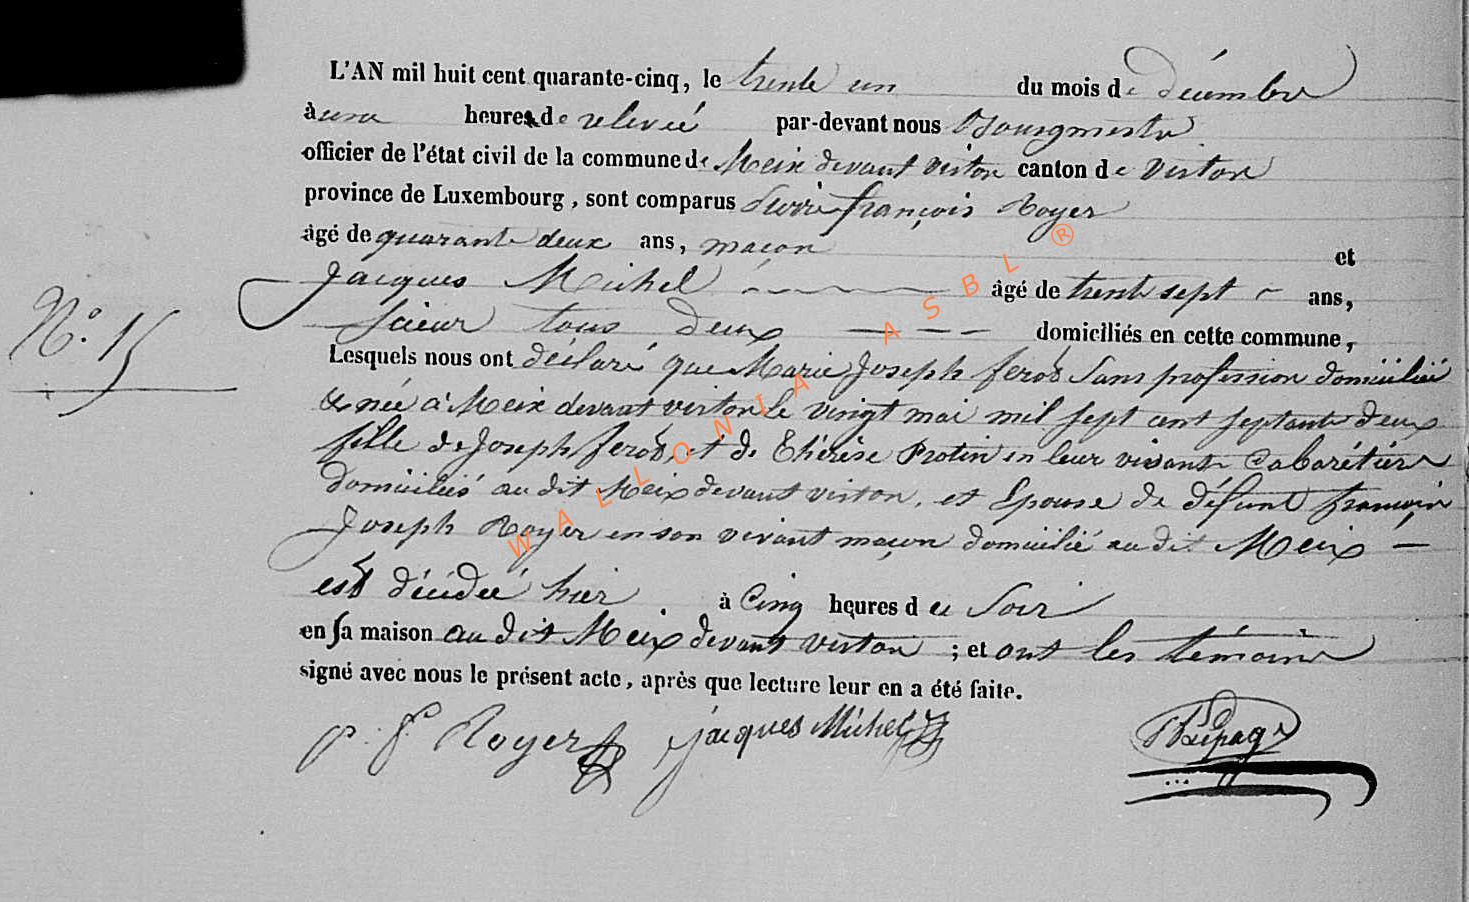 L'AN mil huit cent quarante-cinq, le trente un du mois de décembre
à une heure de relevée par-devant nous Bourgmestre
officier de l'état civil de la commune de Meix devant virton canton de virton
province de Luxembourg, sont comparus Pierre françois Royer
âgé de quarante deux ans, maçon et
Jacques Michel âgé de trente sept ans,
N° 15
Scieur tous deux domiciliés en cette commune,
Lesquels nous ont déclaré que Marie Joseph ferot Sans profession domiciliée
& née à Meix devant virton le vingt mai mil sept cent septante deux
fille de Joseph ferot, et de Thérèse Protin en leur vivant Cabarétiers
domiciliés au dit Meix devant virton, et Epouse de défunt françois
Joseph Royer en son vivant maçon domicilié au dit Meix —
est décédée hier à Cinq heures du Soir
en sa maison au dit Meix devant virton ; et ont les témoins
signé avec nous le présent acte, après que lecture leur en a été faite.
p. f. Royer jacques Michel Lepage
WALLONIA ASBL ®